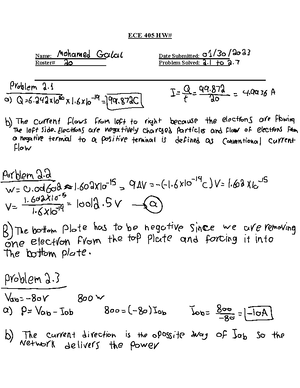 ECE 405 HW#
Name: Mohamed Galal
Date Submitted: 01/30/2023
Roster# 20
Problem Solved: 2.1 to 2.7
Problem 2.1
a) Q = 6.242x10²⁰ x 1.6x10⁻¹⁹ = 99.872C I = Q/t = 99.872/20 = 4.9936 A
b) The current flows from left to right because the electrons are flowing
the left side. Electrons are negatively charged particle and flow of electrons from
a negative terminal to a positive terminal is defined as conventional current
flow
Problem 2.2
= 1.602x10⁻¹⁵ = q ΔV = -(-1.6x10⁻¹⁹C) V = 1.602x10⁻¹⁵
V = 1.602x10⁻¹⁵/1.6x10⁻¹⁹ = 10012.5 V → a
B) The bottom plate has to be negative since we are removing
one electron from the top plate and forcing it into
the bottom plate.
Problem 2.3
Vab = -80V 800 W
a) P = Vab · Iab 800 = (-80) Iab Iab = 800/-80 = -10A
b) The current direction is the opossite way of Iab so the
network delivers the power